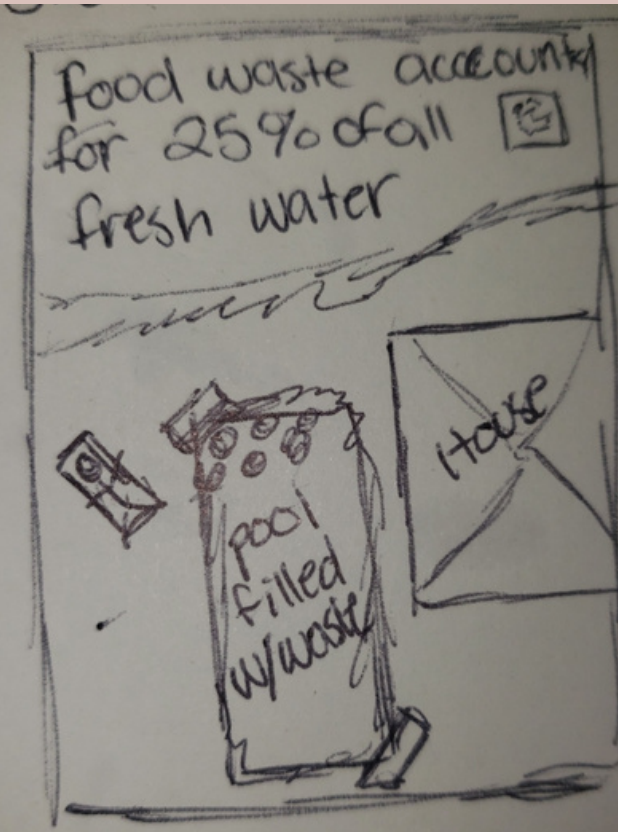 food waste accounts
for 25% of all
fresh water
House
pool
filled
w/waste